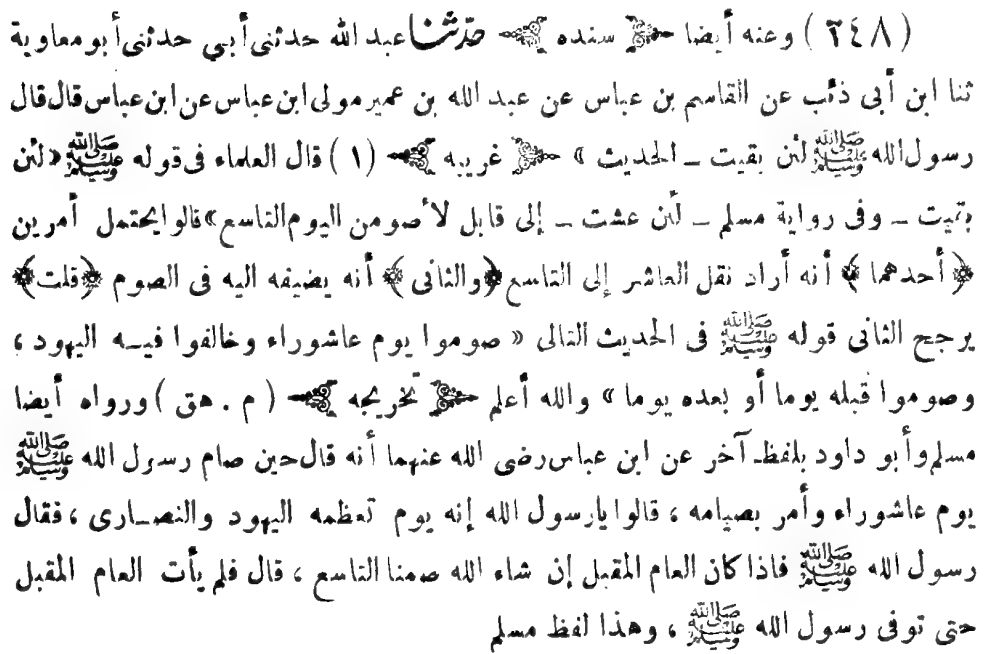 (٢٤٨) وعنه أيضا ﴿ سنده ﴾ حدثنا عبد الله حدثنى أبي حدثنى أبو معاوية
ثنا ابن أبى ذئب عن القاسم بن عباس عن عبد الله بن عمير مولى ابن عباس عن ابن عباس قال قال
رسول الله ﷺ لئن بقيت ــ الحديث » ﴿ غريبه ﴾ (١) قال العلماء فى قوله ﷺ «لئن
بقيت ــ وفى رواية مسلم ــ لئن عشت ــ إلى قابل لأصومن اليوم التاسع» قالوا يحتمل أمرين
﴿أحدهما﴾ أنه أراد نقل العاشر إلى التاسع ﴿والثانى﴾ أنه يضيفه اليه فى الصوم ﴿قلت﴾
يرجح الثانى قوله ﷺ فى الحديث التالى « صوموا يوم عاشوراء وخالفوا فيــه اليهود ،
وصوموا قبله يوما أو بعده يوما » والله أعلم ﴿ تخريجه ﴾ (م . هق) ورواه أيضا
مسلم وأبو داود بلفظ آخر عن ابن عباس رضى الله عنهما أنه قال حين صام رسول الله ﷺ
يوم عاشوراء وأمر بصيامه ، قالوا يارسول الله إنه يوم تعظمه اليهود والنصــارى ، فقال
رسول الله ﷺ فاذا كان العام المقبل إن شاء الله صمنا التاسع ، قال فلم يأت العام المقبل
حتى توفى رسول الله ﷺ ، وهذا لفظ مسلم